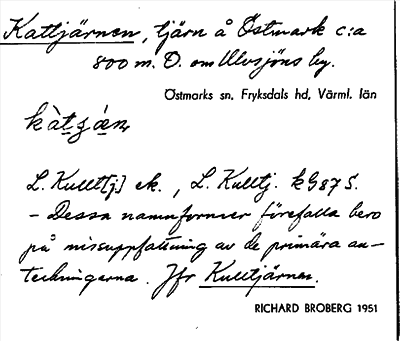 Kattjärnen, tjärn å Östmark c:a
800 m. O. om Ulvsjöns by.
Östmarks sn, Fryksdals hd, Värml. län
L. Kullt[j] ek., L. Kulltj. kG 87 S.
- Dessa namnformer förefalla bero
på missuppfattning av de primära an-
teckningarna. Jfr Kulltjärnen.
RICHARD BROBERG 1951